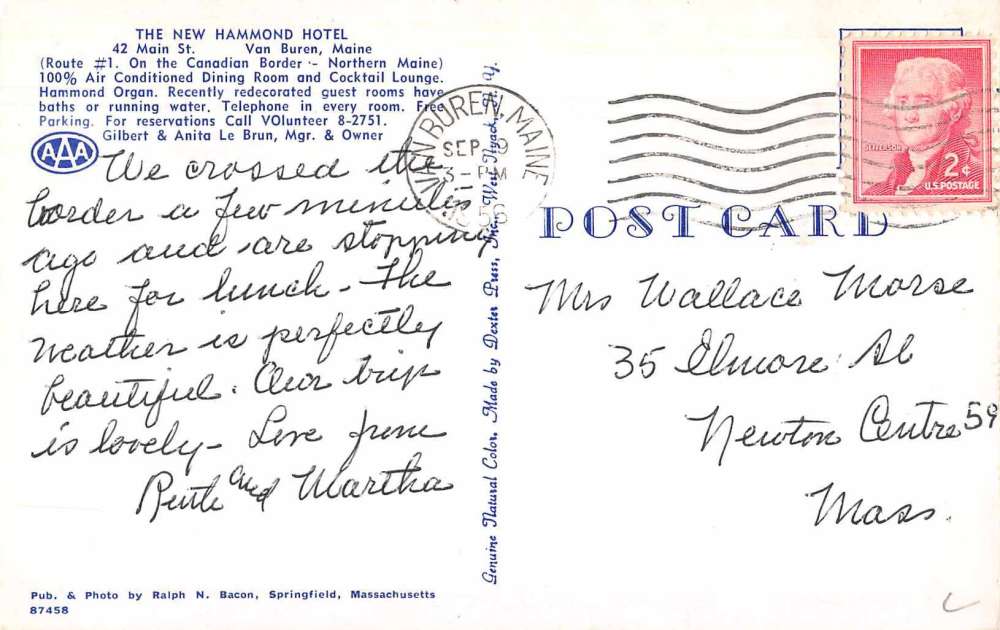 THE NEW HAMMOND HOTEL
42 Main St. Van Buren, Maine
(Route #1. On the Canadian Border - Northern Maine)
100% Air Conditioned Dining Room and Cocktail Lounge.
Hammond Organ. Recently redecorated guest rooms have
baths or running water. Telephone in every room. Free
Parking. For reservations Call VOlunteer 8-2751.
Gilbert & Anita Le Brun, Mgr. & Owner
AAA
We crossed the
border a few minutes
ago and are stopping
here for lunch - The
weather is perfectly
beautiful. Our trip
is lovely - Love from
Ruth and Martha
Pub. & Photo by Ralph N. Bacon, Springfield, Massachusetts
87458
Genuine Natural Color, Made by Dexter Press, Inc., West Nyack, N. Y.
VAN BUREN, MAINE
SEP 9
3 - PM
1956
JEFFERSON
2¢
U.S. POSTAGE
POST CARD
Mrs Wallace Morse
35 Elmore St
Newton Centre 59
Mass.